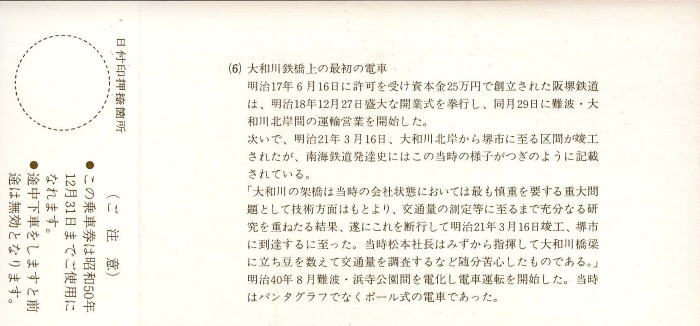 日付印押捺箇所
(ご注意)
●この乗車券は昭和50年
12月31日までご使用に
なれます。
●途中下車をしますと前
途は無効となります。
(6) 大和川鉄橋上の最初の電車
明治17年6月16日に許可を受け資本金25万円で創立された阪堺鉄道
は、明治18年12月27日盛大な開業式を挙行し、同月29日に難波・大
和川北岸間の運輸営業を開始した。
次いで、明治21年3月16日、大和川北岸から堺市に至る区間が竣工
されたが、南海鉄道発達史にはこの当時の様子がつぎのように記載
されている。
「大和川の架橋は当時の会社状態においては最も慎重を要する重大問
題として技術方面はもとより、交通量の測定等に至るまで充分なる研
究を重ねたる結果、遂にこれを断行して明治21年3月16日竣工、堺市
に到達するに至った。当時松本社長はみずから指揮して大和川橋梁
に立ち豆を数えて交通量を調査するなど随分苦心したものである。」
明治40年8月難波・浜寺公園間を電化し電車運転を開始した。当時
はパンタグラフでなくポール式の電車であった。